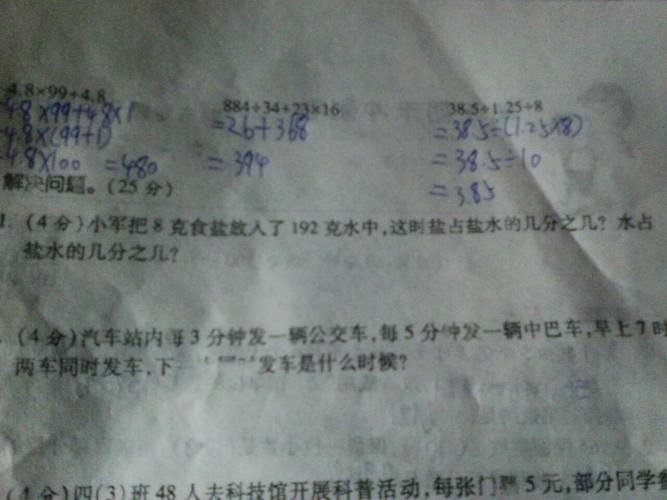 4.8×99+4.8
4.8×99+4.8×1
4.8×(99+1)
4.8×100 =480
884÷34+23×16
=26+368
=394
38.5÷1.25÷8
=38.5÷(1.25×8)
=38.5÷10
=3.85
解决问题。(25分)
1. (4分)小军把8克食盐放入了192克水中,这时盐占盐水的几分之几?水占
盐水的几分之几?
(4分)汽车站内每3分钟发一辆公交车,每5分钟发一辆中巴车,早上7时
两车同时发车,下一 发车是什么时候?
(4分)四(3)班48人去科技馆开展科普活动,每张门票5元,部分同学